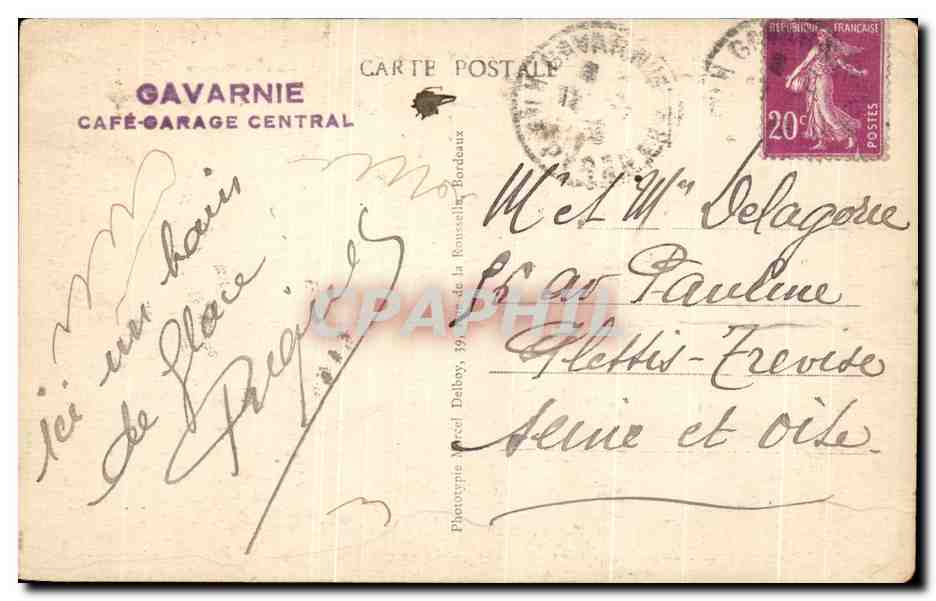 CARTE POSTALE
GAVARNIE
CAFÉ-GARAGE CENTRAL
GAVARNIE
REPUBLIQUE FRANÇAISE
20c
POSTES
ici un bain
de glace
Phototypie Marcel Delboy, 39, rue de la Rousselle, Bordeaux
Mr et Mme Delagorre
56 av Pauline
Plessis-Trevise
Seine et Oise.
CPAPHIL